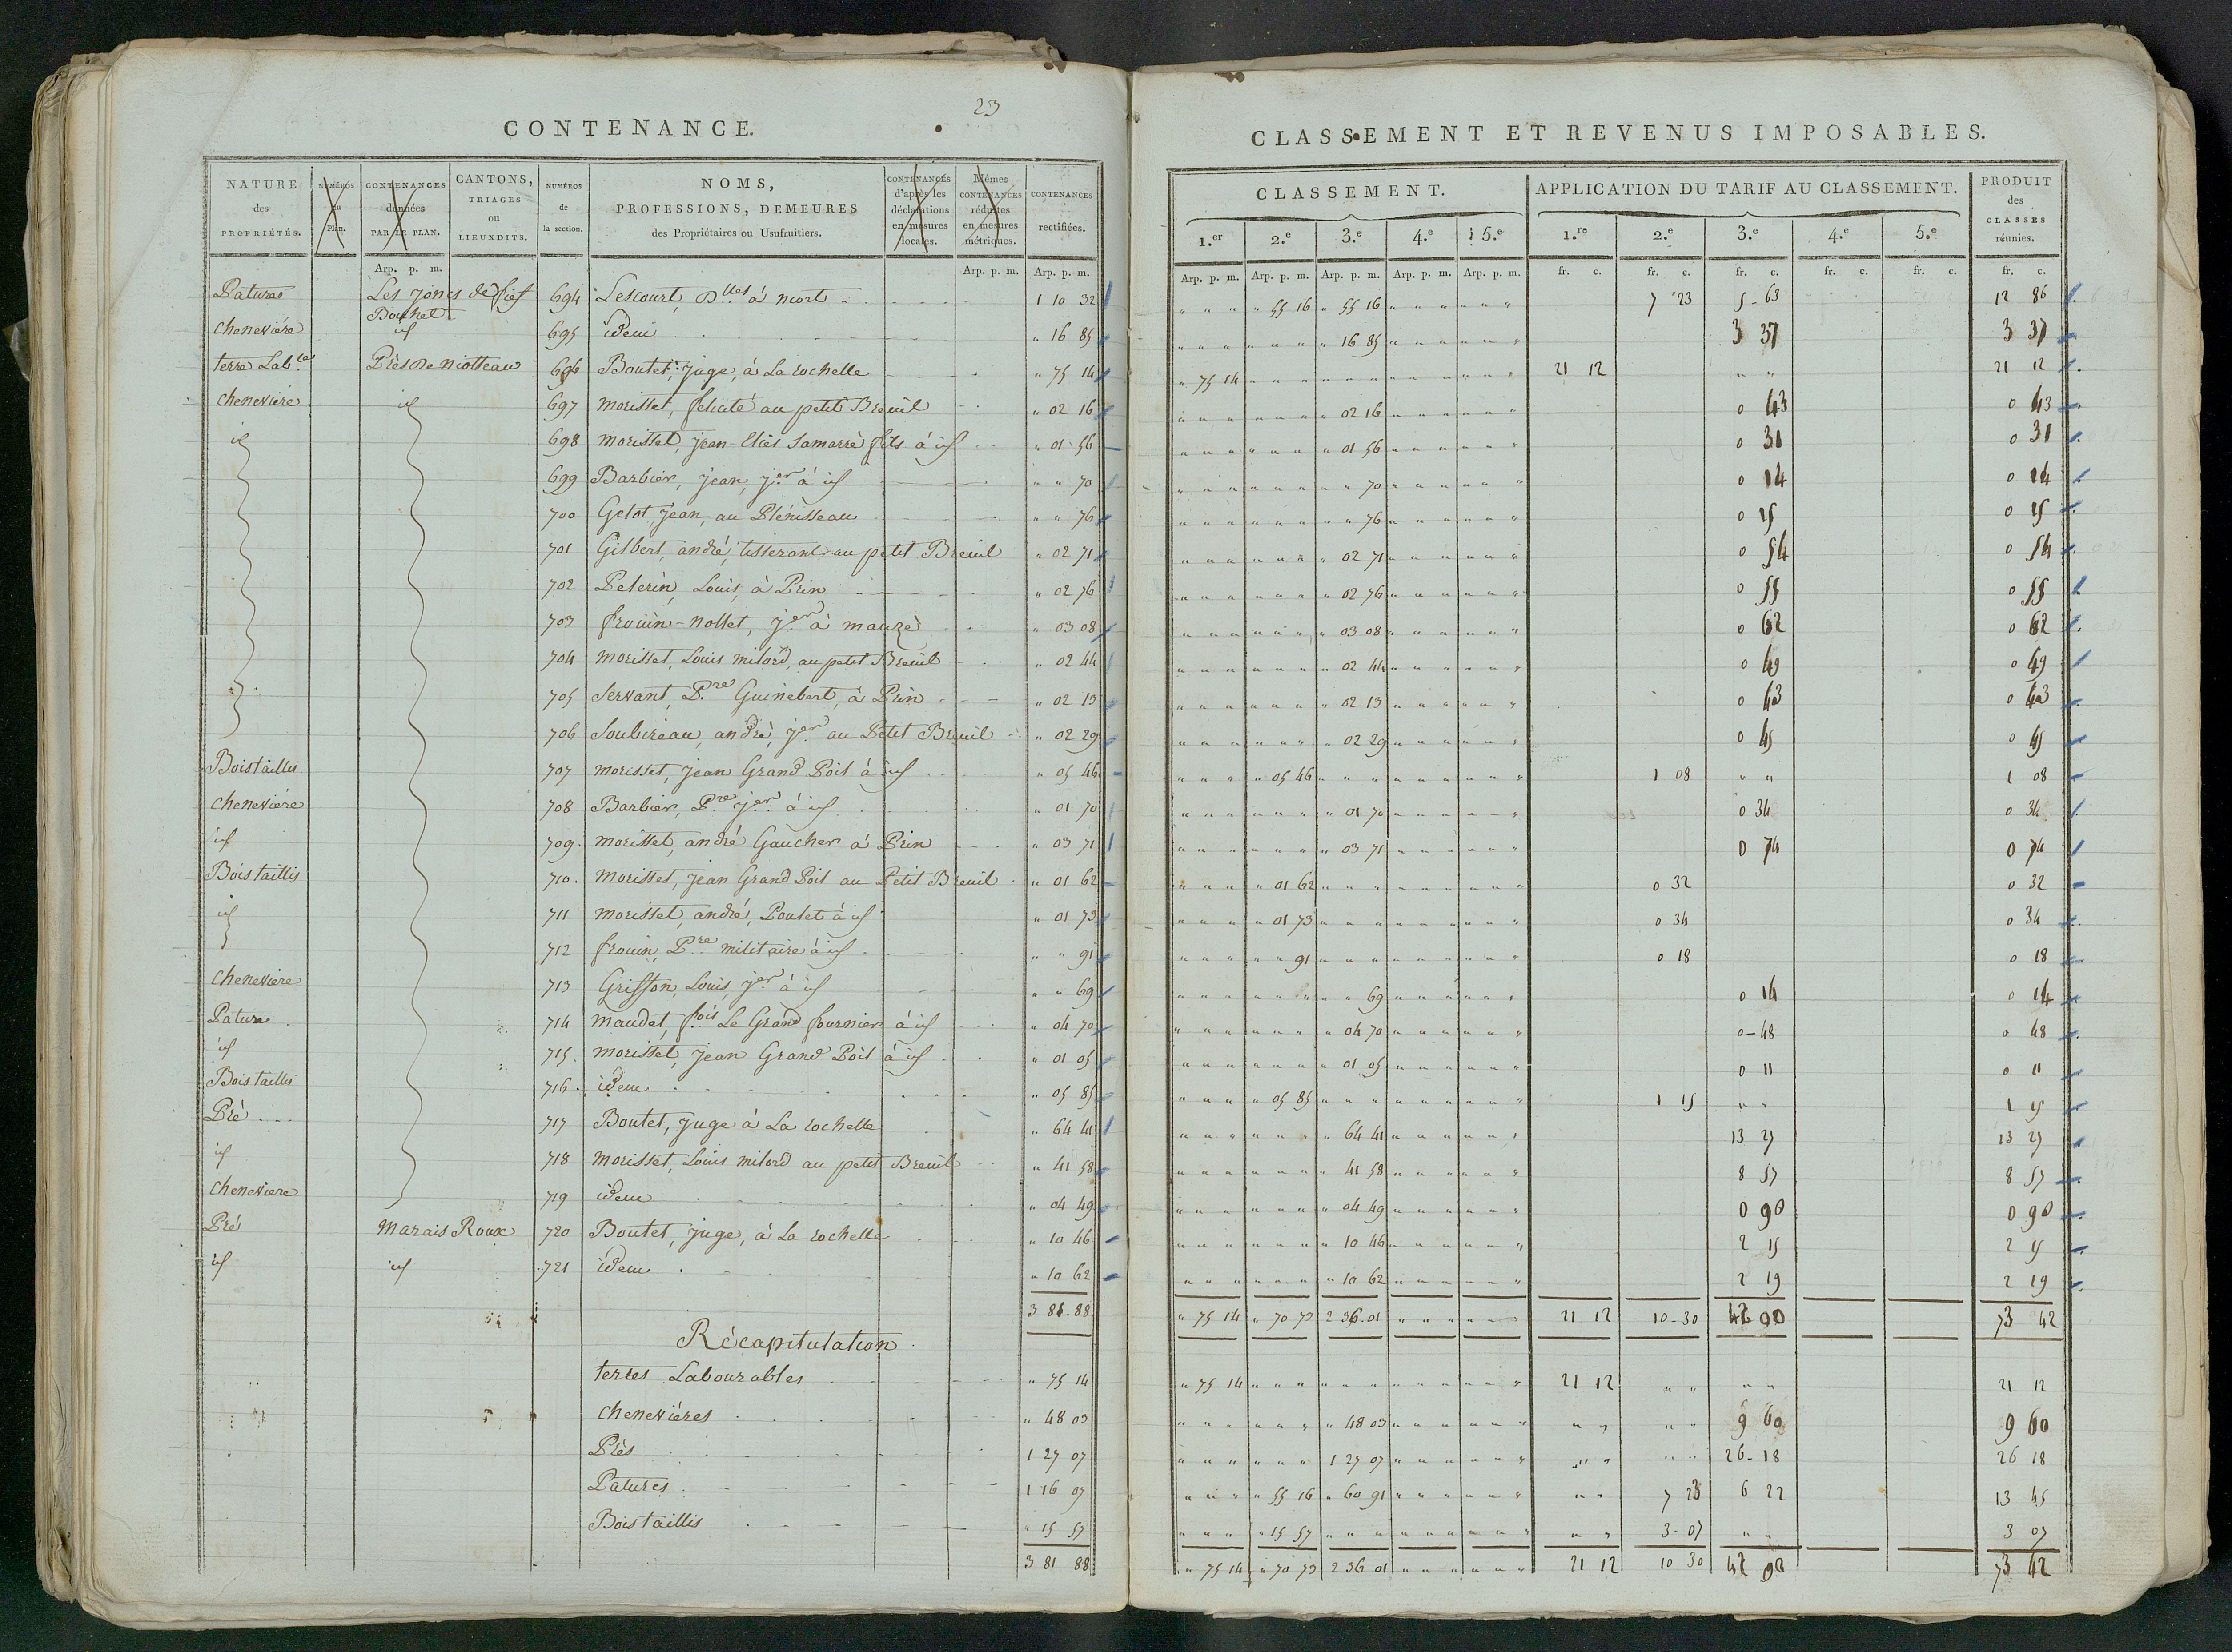 23
CONTENANCE.
NATURE des PROPRIÉTÉS. | NUMÉROS du Plan. | CONTENANCES données PAR LE PLAN. | CANTONS, TRIAGES ou LIEUXDITS. | NUMÉROS de la section. | NOMS, PROFESSIONS, DEMEURES des Propriétaires ou Usufruitiers. | CONTENANCES d'après les déclarations en mesures locales. | Mêmes CONTENANCES réduites en mesures métriques. | CONTENANCES rectifiées.
Arp. p. m. | Arp. p. m. | Arp. p. m.
Patures | Les joncs de fief Bouhet | 694 | Lescourt, Dlles à niort | 1 10 32
cheneviére | id | 695 | idem | " 16 85
terre Lab.les | Près de niotteau | 696 | Boutet, juge, à La rochelle | " 75 14
cheneviere | id | 697 | morisset, felicité au petit Breuil | " 02 16
id | 698 | morisset, jean-Elies Samarré fils à id | " 01 56
699 | Barbier, jean, j.er à id | " " 70
700 | Getot, jean, au Plénisseau | " " 76
701 | Gilbert, andré, tisserant au petit Breuil | " 02 71
702 | Pelerin, Louis, à Prin | " 02 76
703 | frouin-nollet, j.er à mauzé | " 03 08
704 | morisset, Louis milord, au petit Breuil | " 02 44
705 | Servant, P.re Guinebert, à Prin | " 02 13
706 | Soulireau, andré, j.er au Petit Breuil | " 02 29
Bois taillis | 707 | morisset, jean Grand Poil à id | " 05 46
cheneviére | 708 | Barbier, P.re j.er à id | " 01 70
id | 709. | morisset, andré Gaucher à Prin | " 03 71
Bois taillis | 710. | morisset, jean Grand Poil au Petit Breuil | " 01 62
id | 711 | morisset, andré, Poulet à id | " 01 73
712 | frouin, P.re militaire à id | " " 91
cheneviere | 713 | Griffon, Louis, j.er à id | " " 69
Pature | 714 | maudet, f.ois Le Grand fournier à id | " 04 70
id | 715. | morisset, jean Grand Poil à id | " 01 05
Bois taillis | 716. | idem | " 05 85
Pré | 717 | Boutet, juge à La rochelle | " 64 41
id | 718 | morisset, Louis milord au petit Breuil | " 41 58
cheneviere | 719 | idem | " 04 49
Pré | marais Roux | 720 | Boutet, juge, à La rochelle | " 10 46
id | id | 721 | idem | " 10 62
3 81.88
Récapitulation.
terres Labourables | " 75 14
cheneviéres | " 48 03
Prés | 1 27 07
Patures | 1 16 07
Bois taillis | " 15 57
3 81 88
CLASSEMENT ET REVENUS IMPOSABLES.
CLASSEMENT. | APPLICATION DU TARIF AU CLASSEMENT. | PRODUIT des CLASSES réunies.
1.er | 2.e | 3.e | 4.e | 5.e | 1.re | 2.e | 3.e | 4.e | 5.e
Arp. p. m. | Arp. p. m. | Arp. p. m. | Arp. p. m. | Arp. p. m. | fr. c. | fr. c. | fr. c. | fr. c. | fr. c. | fr. c.
" 55 16 | " 55 16 | 7 23 | 5-63 | 12 86
" 16 85 | 3 37 | 3 37
" 75 14 | 21 12 | " " | 21 12
" 02 16 | 0 43 | 0 43
" 01 56 | 0 31 | 0 31
" " 70 | 0 14 | 0 14
" " 76 | 0 15 | 0 15
" 02 71 | 0 54 | 0 54
" 02 76 | 0 55 | 0 55
" 03 08 | 0 62 | 0 62
" 02 44 | 0 49 | 0 49
" 02 13 | 0 43 | 0 43
" 02 29 | 0 45 | 0 45
" 05 46 | 1 08 | " " | 1 08
" 01 70 | 0 34 | 0 34
" 03 71 | 0 74 | 0 74
" 01 62 | 0 32 | 0 32
" 01 73 | 0 34 | 0 34
" " 91 | 0 18 | 0 18
" " 69 | 0 14 | 0 14
" 04 70 | 0-48 | 0 48
" 01 05 | 0 11 | 0 11
" 05 85 | 1 15 | " " | 1 15
" 64 41 | 13 27 | 13 27
" 41 58 | 8 57 | 8 57
" 04 49 | 0 90 | 0 90
" 10 46 | 2 15 | 2 15
" 10 62 | 2 19 | 2 19
" 75 14 | " 70 73 | 2 36.01 | 21 12 | 10-30 | 42 00 | 73 42
" 75 14 | 21 12 | " " | " " | 21 12
" 48 03 | " " | " " | 9 60 | 9 60
1 27 07 | " " | " " | 26-18 | 26 18
" 55 16 | " 60 91 | " " | 7 23 | 6 22 | 13 45
" 15 57 | " " | 3-07 | " " | 3 07
" 75 14 | " 70 73 | 2 36 01 | 21 12 | 10 30 | 42 00 | 73 42